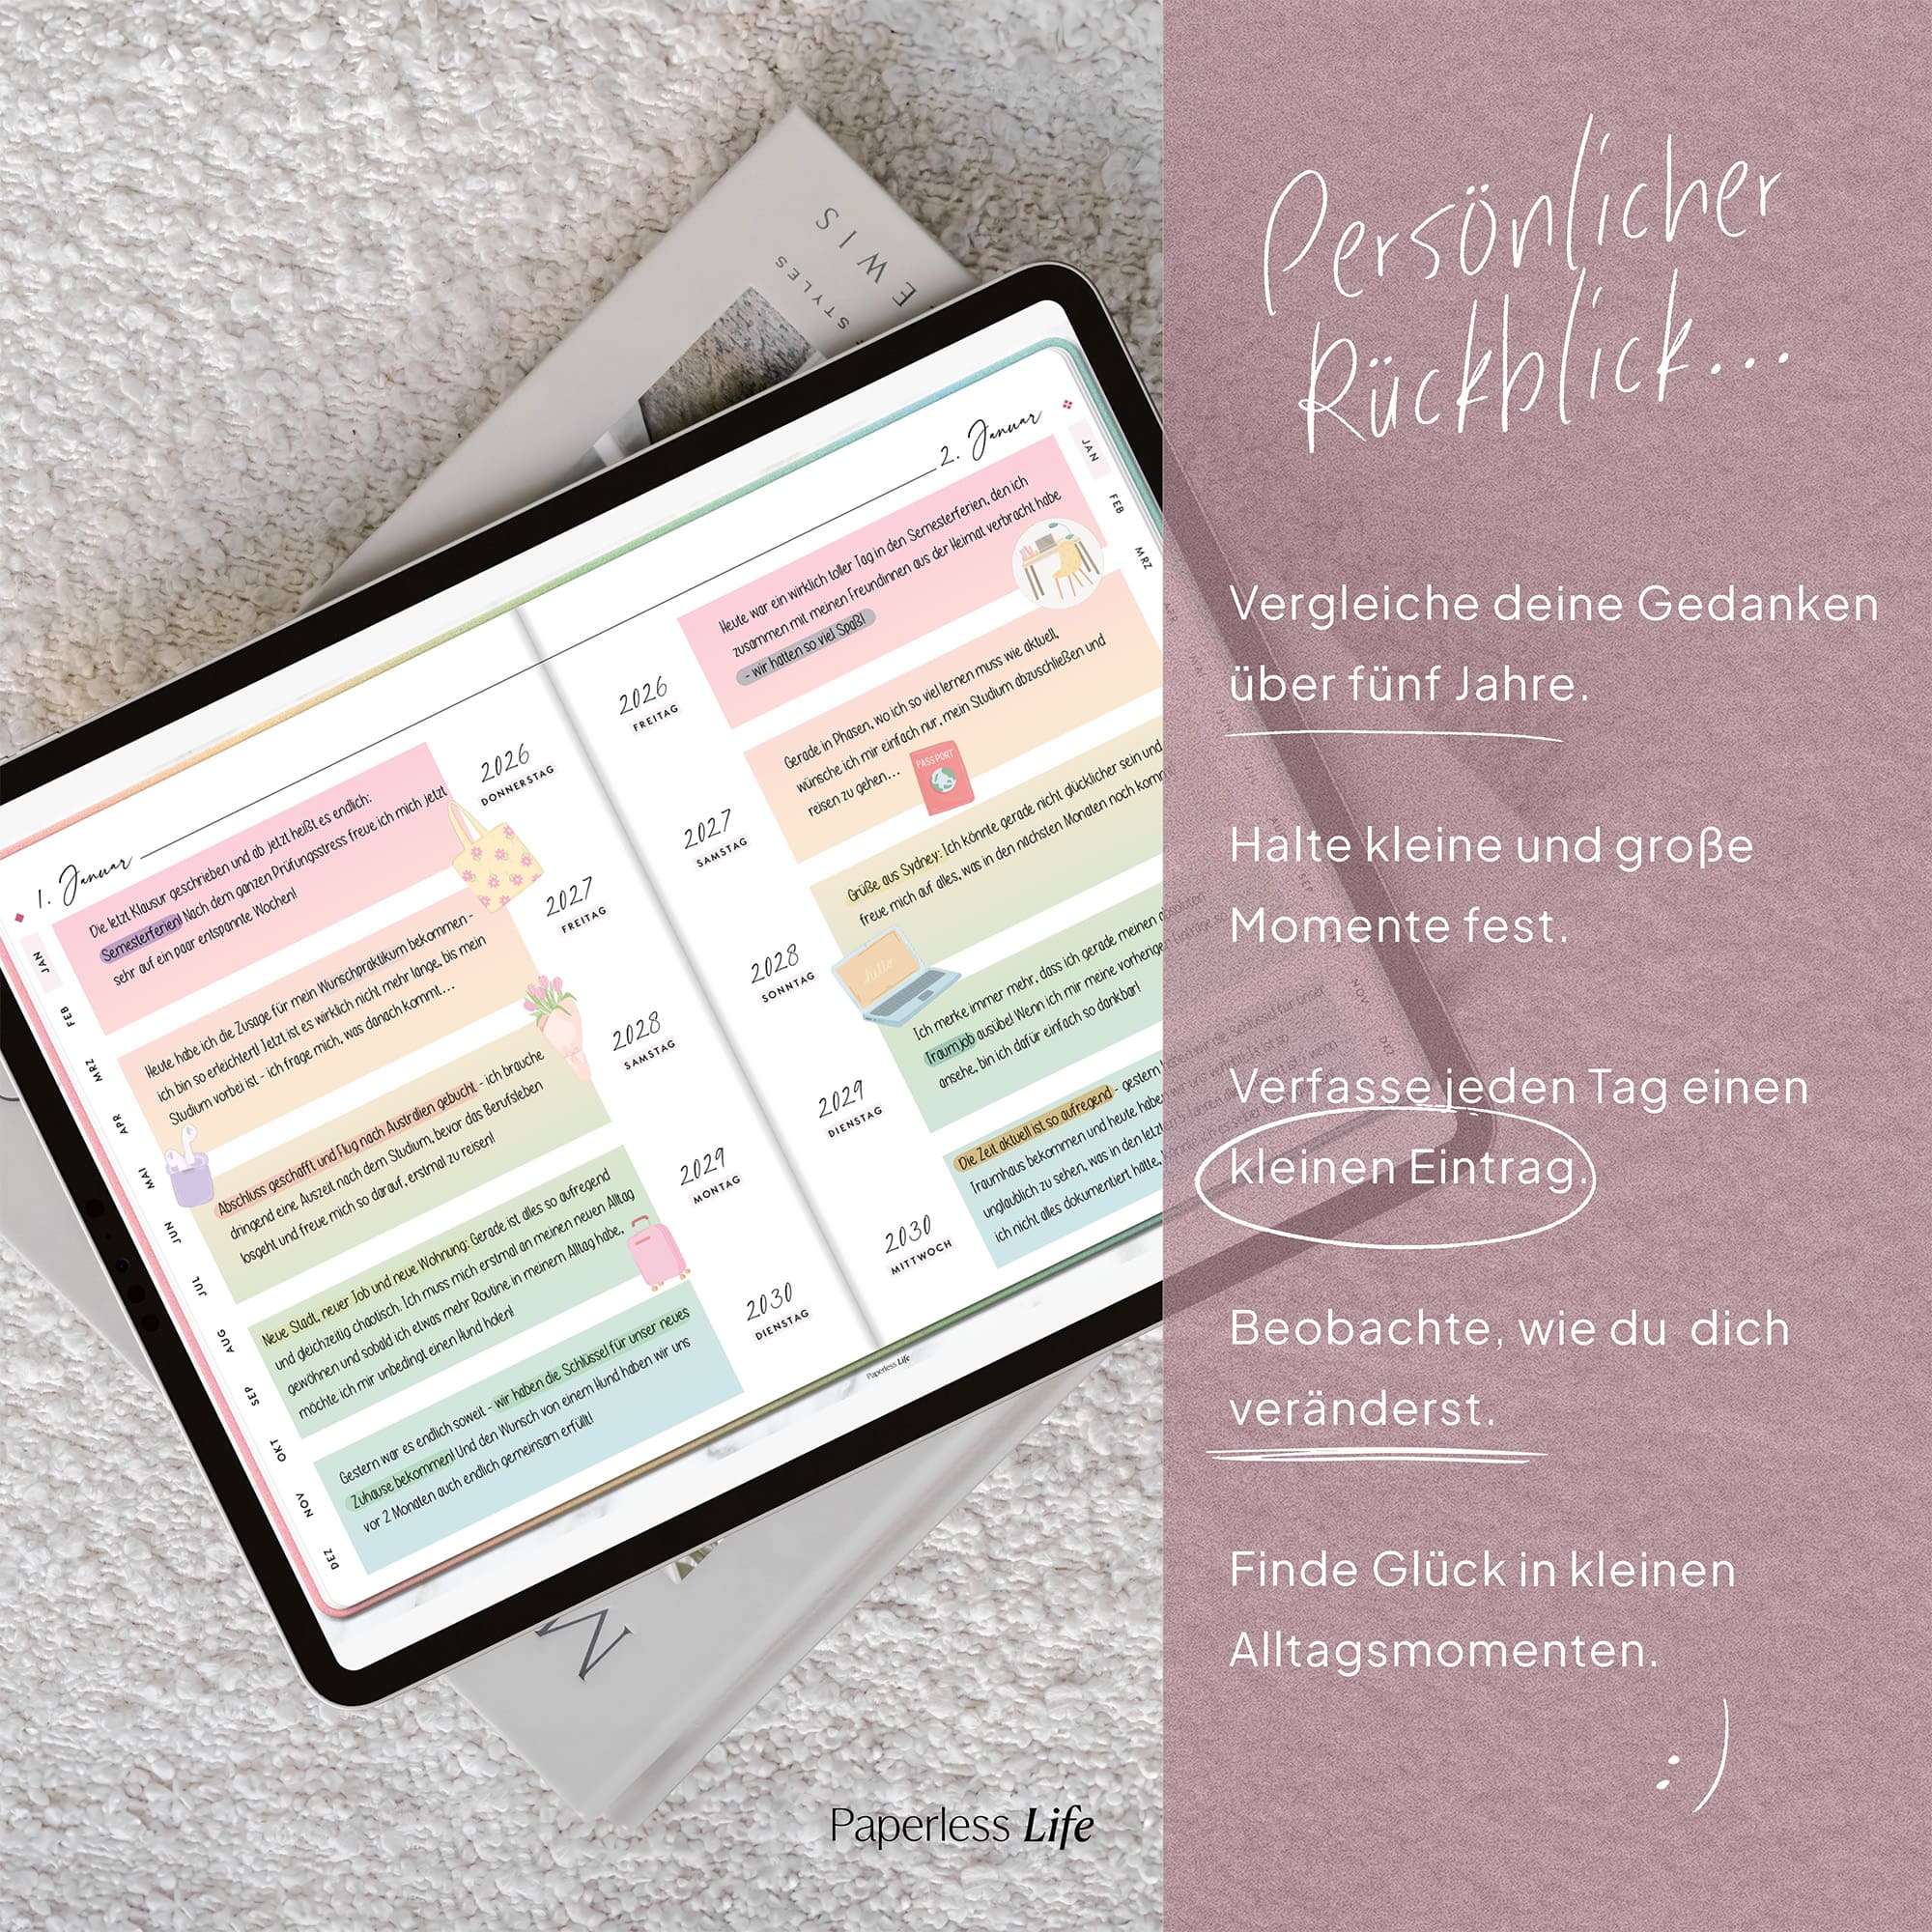 EWIS
STYLES
1. Januar
JAN
FEB
MRZ
APR
MAI
JUN
JUL
AUG
SEP
OKT
NOV
DEZ
Die letzt Klausur geschrieben und ab jetzt heißt es endlich:
Semesterferien! Nach dem ganzen Prüfungsstress freue ich mich jetzt
sehr auf ein paar entspannte Wochen!
2026
DONNERSTAG
Heute habe ich die Zusage für mein Wunschpraktikum bekommen -
ich bin so erleichtert! Jetzt ist es wirklich nicht mehr lange, bis mein
Studium vorbei ist - ich frage mich, was danach kommt...
2027
FREITAG
Abschluss geschafft und Flug nach Australien gebucht - ich brauche
dringend eine Auszeit nach dem Studium, bevor das Berufsleben
losgeht und freue mich so darauf, erstmal zu reisen!
2028
SAMSTAG
Neue Stadt, neuer Job und neue Wohnung: Gerade ist alles so aufregend
und gleichzeitig chaotisch. Ich muss mich erstmal an meinen neuen Alltag
gewöhnen und sobald ich etwas mehr Routine in meinem Alltag habe,
möchte ich mir unbedingt einen Hund holen!
2029
MONTAG
Gestern war es endlich soweit - wir haben die Schlüssel für unser neues
Zuhause bekommen! Und den Wunsch von einem Hund haben wir uns
vor 2 Monaten auch endlich gemeinsam erfüllt!
2030
DIENSTAG
2. Januar
JAN
FEB
MRZ
2026
FREITAG
Heute war ein wirklich toller Tag in den Semesterferien, den ich
zusammen mit meinen Freundinnen aus der Heimat verbracht habe
- wir hatten so viel Spaß!
2027
SAMSTAG
Gerade in Phasen, wo ich so viel lernen muss wie aktuell,
wünsche ich mir einfach nur, mein Studium abzuschließen und
reisen zu gehen...
PASSPORT
2028
SONNTAG
Grüße aus Sydney: Ich könnte gerade nicht glücklicher sein und
freue mich auf alles, was in den nächsten Monaten noch
hello
2029
DIENSTAG
Ich merke immer mehr, dass ich gerade meinen absoluten
Traumjob ausübe! Wenn ich mir meine vorherigen Einträge so
ansehe, bin ich dafür einfach so dankbar!
2030
MITTWOCH
Die Zeit aktuell ist so aufregend - gestern haben wir die Schlüssel für unser
Traumhaus bekommen und heute
unglaublich zu sehen, was in den
ich nicht alles dokumentiert hätte,
SEP
NOV
DEZ
Paperless Life
M
Paperless Life
Persönlicher
Rückblick...
Vergleiche deine Gedanken
über fünf Jahre.
Halte kleine und große
Momente fest.
Verfasse jeden Tag einen
kleinen Eintrag.
Beobachte, wie du dich
veränderst.
Finde Glück in kleinen
Alltagsmomenten.
:)